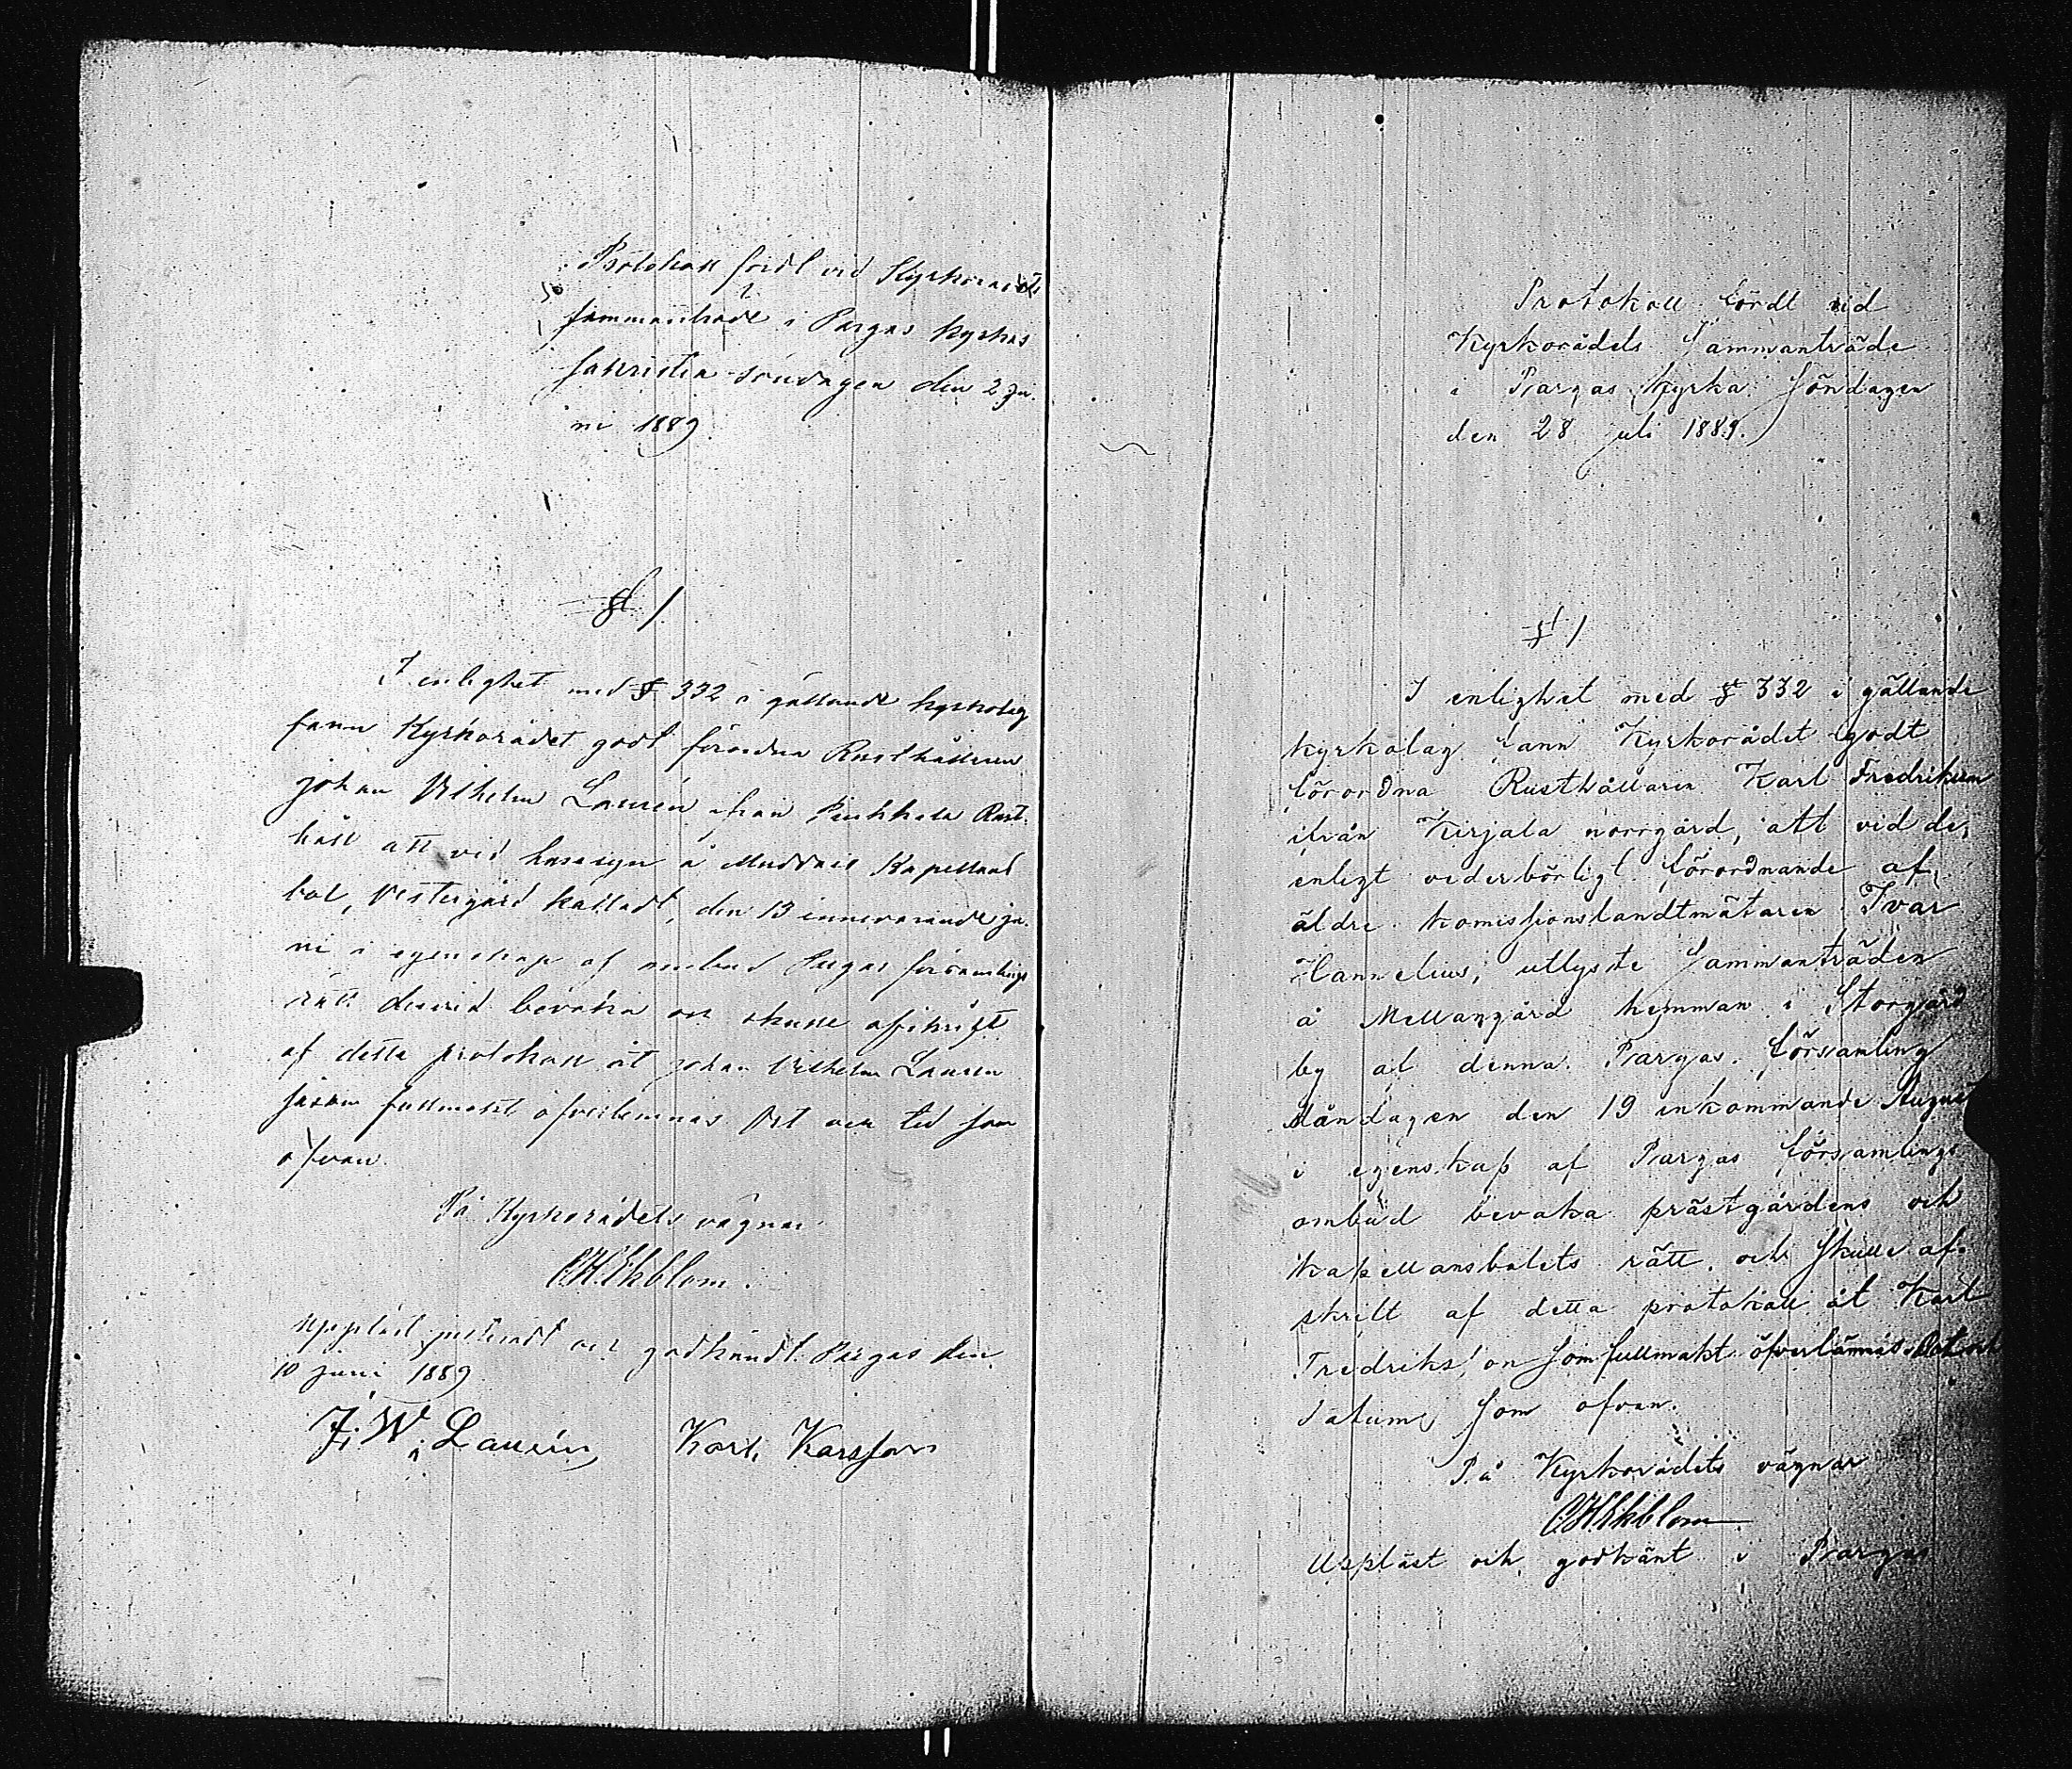 Protokoll fördt vid Kyrkorådets
sammanträde i Pargas kyrkas
sakristia söndagen den 2 Ju-
ni 1889
§ 1
I enlighet med § 332 i gällande kyrkolag
fann Kyrkorådet godt förordna Rusthållaren
Johan Vilhelm Laurén ifrån Rust-
håll att vid husesyn å Muddais Kapellans
bol, Vestergård kalladt, den 13 innevarande ju-
ni i egenskap af ombud Pargas församlings
rätt dervid bevaka och skulle afskrift
af detta protokoll åt Johan Vilhelm Laurén
såsom fullmakt öfverlemnas Ort och tid som
ofvan.
På Kyrkorådets vägnar
C.H.Ekblom.
Uppläst justeradt och godkändt. Pargas den
10 juni 1889
J. W. Laurén Karl Karlsson
Protokoll fördt vid
Kyrkorådets Sammanträde
i Pargas Kyrka Söndagen
den 28 Juli 1889.
§ 1
I enlighet med § 332 i gällande
kyrkolag fann Kyrkorådet godt
förordna Rusthållaren Karl Fredriksson
ifrån Kirjala norrgård, att vid de,
enligt vederbörligt förordnande af
äldre komissionslandtmätaren Ivar
Hannelius, utlyste Sammanträden
å Mellangård hemman i Storgård
by af denna Pargas församling
Måndagen den 19 inkommande August
i egenskap af Pargas församlings
ombud bevaka prästgårdens och
Kapellansbolets rätt, och skulle af-
skrift af detta protokoll åt Karl
Fredriksson som fullmakt öfverlämnas Ort och
datum som ofvan.
På Kyrkorådets vägnar
C.H.Ekblom
Uppläst och godkänt i Pargas